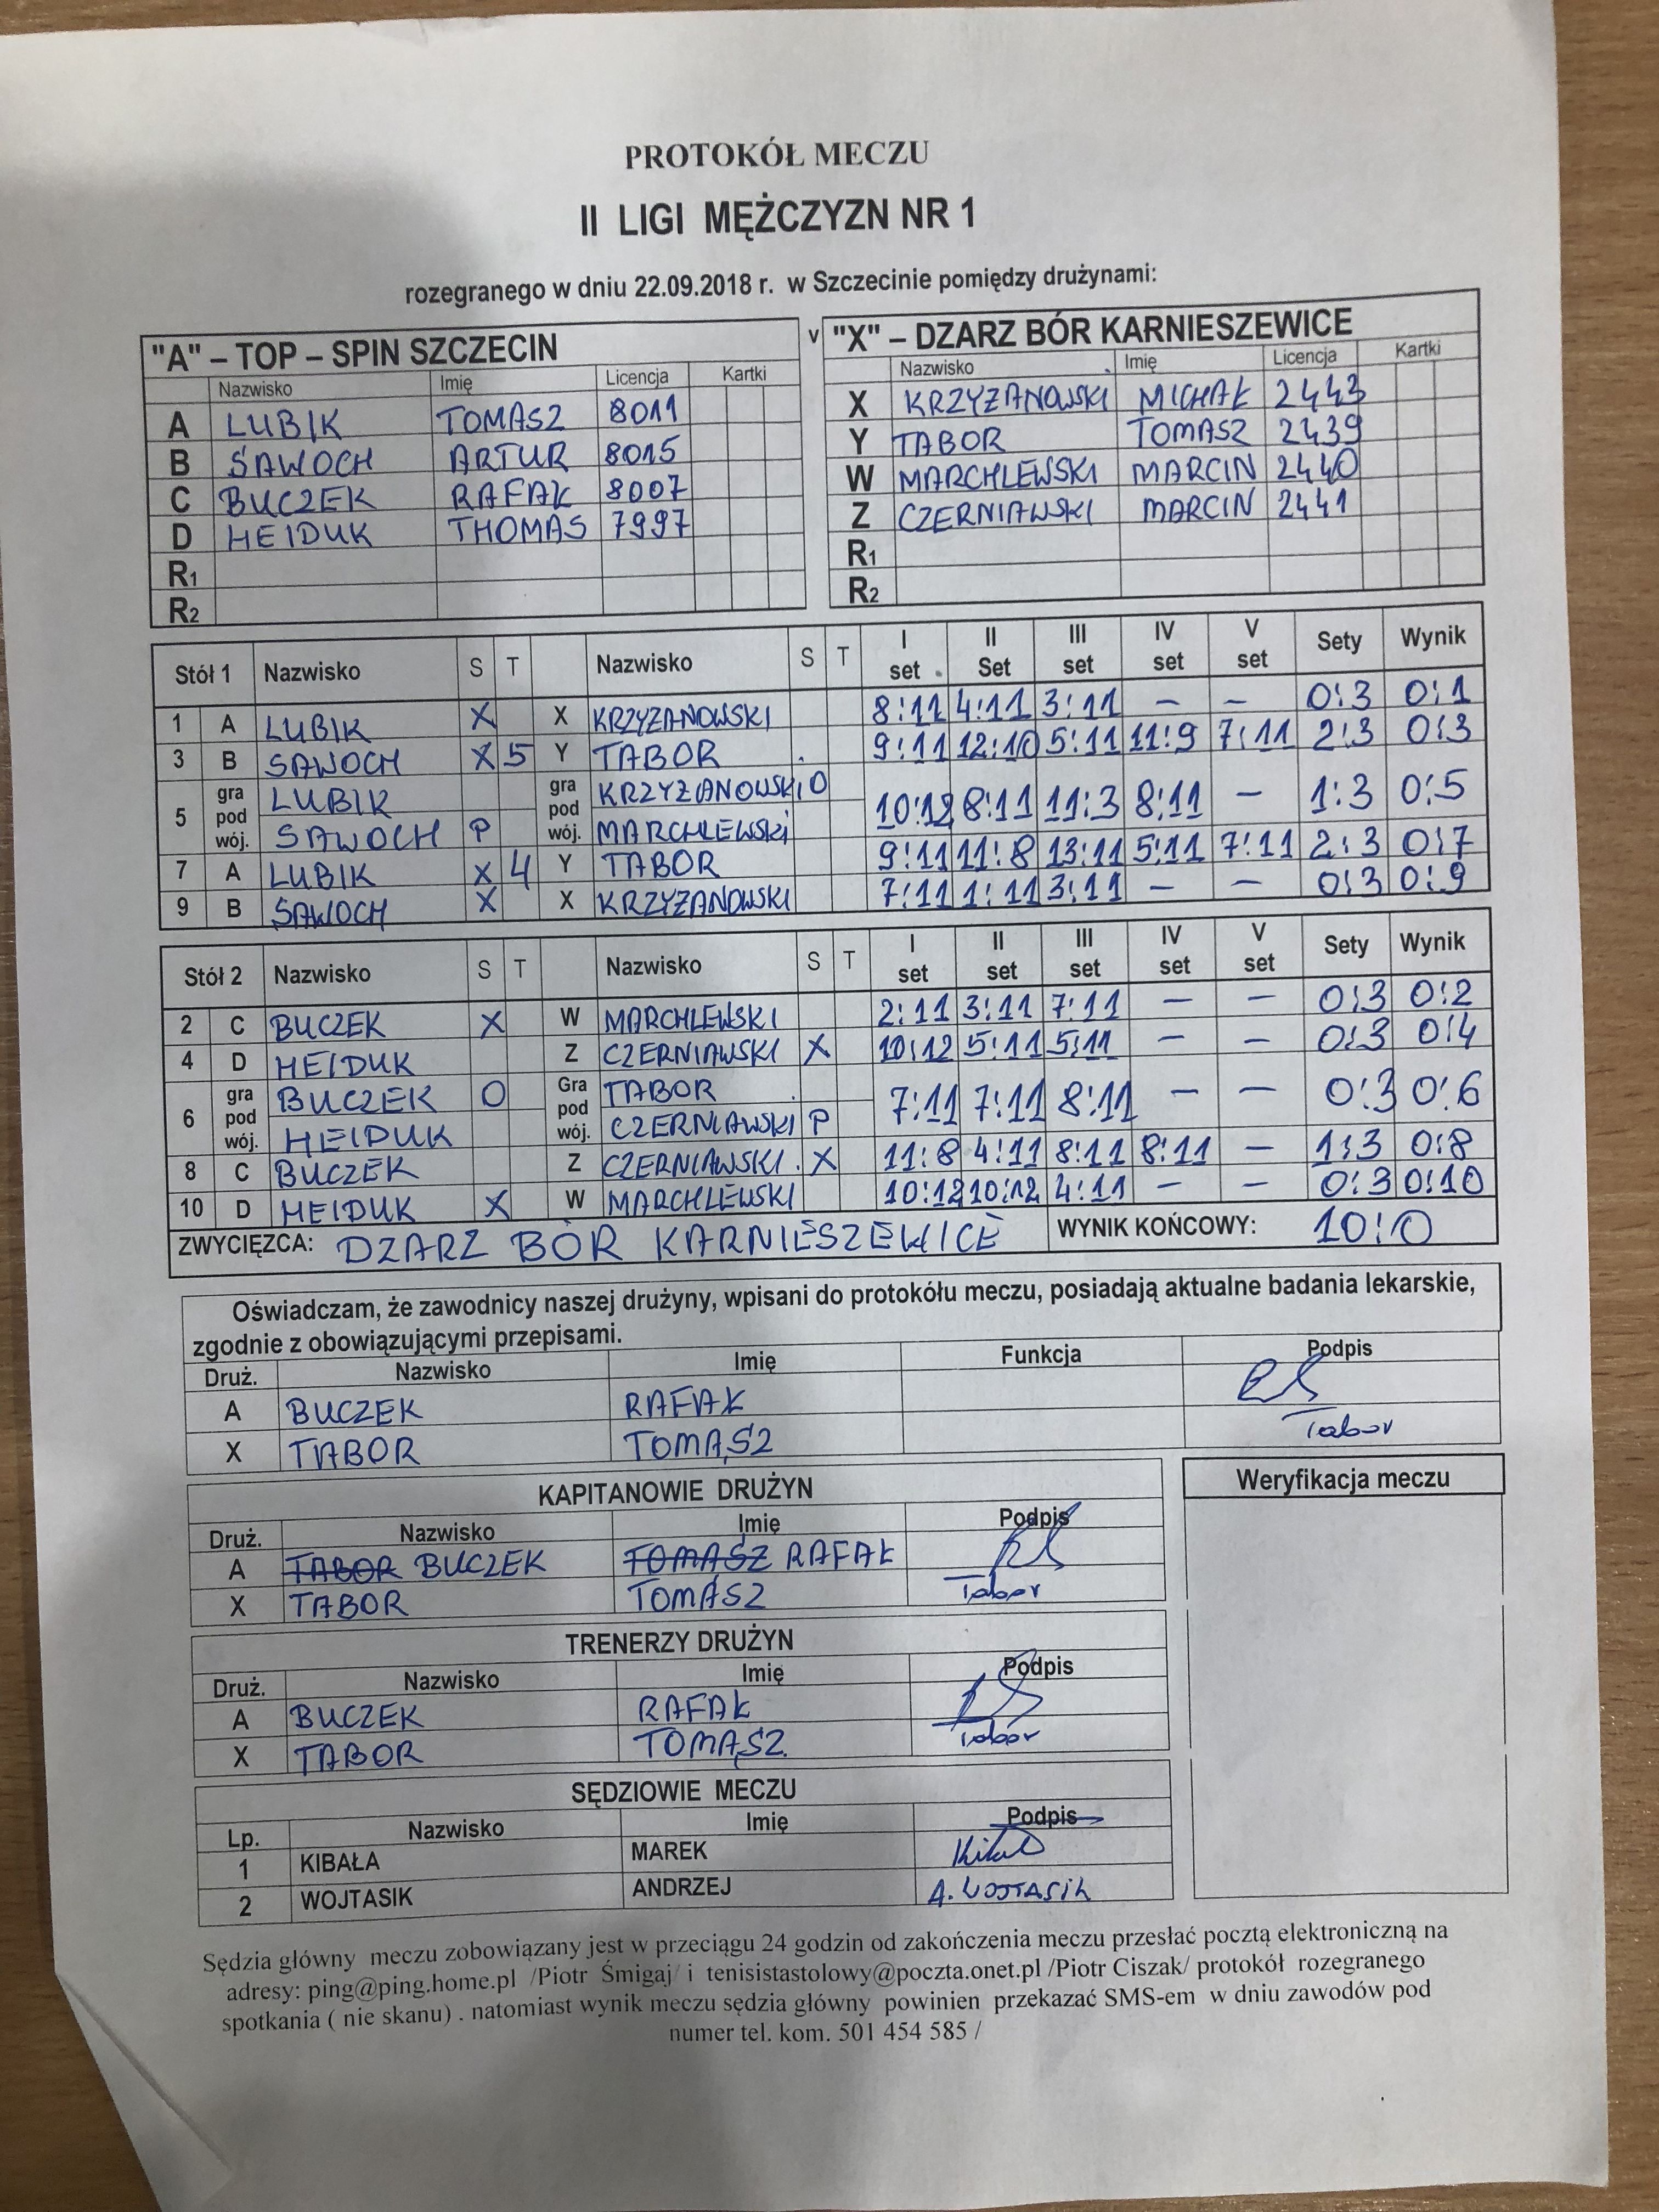 PROTOKÓŁ MECZU
II LIGI MĘŻCZYZN NR 1
rozegranego w dniu 22.09.2018 r. w Szczecinie pomiędzy drużynami:
"A" – TOP – SPIN SZCZECIN v "X" – DZARZ BÓR KARNIESZEWICE
Nazwisko Imię Licencja Kartki Nazwisko Imię Licencja Kartki
A LUBIK TOMASZ 8011 X KRZYŻANOWSKI MICHAŁ 2443
B SAWOCH ARTUR 8015 Y TABOR TOMASZ 2439
C BUCZEK RAFAŁ 8007 W MARCHLEWSKI MARCIN 2440
D HEIDUK THOMAS 7997 Z CZERNIAWSKI MARCIN 2441
R1 R1
R2 R2
Stół 1 Nazwisko S T Nazwisko S T I set II Set III set IV set V set Sety Wynik
1 A LUBIK X X KRZYŻANOWSKI 8:11 4:11 3:11 – – 0:3 0:1
3 B SAWOCH X 5 Y TABOR 9:11 12:10 5:11 11:9 7:11 2:3 0:3
5 gra pod wój. LUBIK gra pod wój. KRZYŻANOWSKI O 10:12 8:11 11:3 8:11 – 1:3 0:5
SAWOCH P MARCHLEWSKI
7 A LUBIK X 4 Y TABOR 9:11 11:8 13:11 5:11 7:11 2:3 0:7
9 B SAWOCH X X KRZYŻANOWSKI 7:11 1:11 3:11 – – 0:3 0:9
Stół 2 Nazwisko S T Nazwisko S T I set II set III set IV set V set Sety Wynik
2 C BUCZEK X W MARCHLEWSKI 2:11 3:11 7:11 – – 0:3 0:2
4 D HEIDUK Z CZERNIAWSKI X 10:12 5:11 5:11 – – 0:3 0:4
6 gra pod wój. BUCZEK O Gra pod wój. TABOR 7:11 7:11 8:11 – – 0:3 0:6
HEIDUK CZERNIAWSKI P
8 C BUCZEK Z CZERNIAWSKI X 11:8 4:11 8:11 8:11 – 1:3 0:8
10 D HEIDUK X W MARCHLEWSKI 10:12 10:12 4:11 – – 0:3 0:10
ZWYCIĘZCA: DZARZ BÓR KARNIESZEWICE WYNIK KOŃCOWY: 10:0
Oświadczam, że zawodnicy naszej drużyny, wpisani do protokółu meczu, posiadają aktualne badania lekarskie,
zgodnie z obowiązującymi przepisami.
Druż. Nazwisko Imię Funkcja Podpis
A BUCZEK RAFAŁ
X TABOR TOMASZ Tabor
KAPITANOWIE DRUŻYN
Weryfikacja meczu
Druż. Nazwisko Imię Podpis
A TABOR BUCZEK TOMASZ RAFAŁ
X TABOR TOMASZ Tabor
TRENERZY DRUŻYN
Druż. Nazwisko Imię Podpis
A BUCZEK RAFAŁ
X TABOR TOMASZ Tabor
SĘDZIOWIE MECZU
Lp. Nazwisko Imię Podpis
1 KIBAŁA MAREK
2 WOJTASIK ANDRZEJ A. WOJTASIK
Sędzia główny meczu zobowiązany jest w przeciągu 24 godzin od zakończenia meczu przesłać pocztą elektroniczną na
adresy: ping@ping.home.pl /Piotr Śmigaj/ i tenisistastolowy@poczta.onet.pl /Piotr Ciszak/ protokół rozegranego
spotkania ( nie skanu) . natomiast wynik meczu sędzia główny powinien przekazać SMS-em w dniu zawodów pod
numer tel. kom. 501 454 585 /